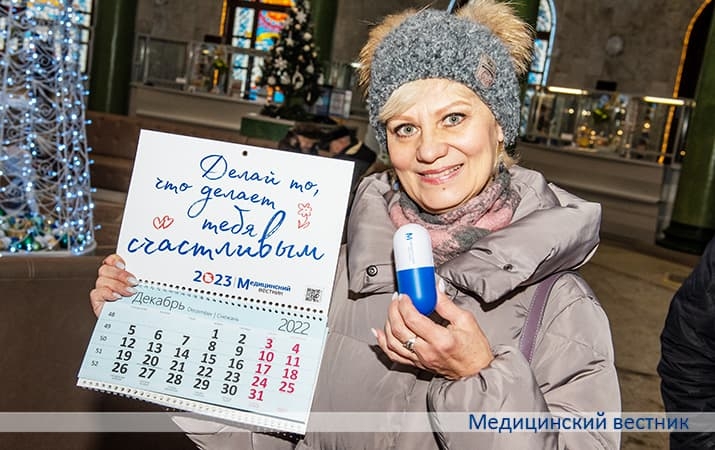 Делай то,
что делает
тебя
счастливым
2023 | Медицинский
вестник
Декабрь December | Снежань 2022
48 1 2 3 4
49 5 6 7 8 9 10 11
12 13 14 15 16 17 18
19 20 21 22 23 24 25
52 26 27 28 29 30 31
М
Медицинский вестник